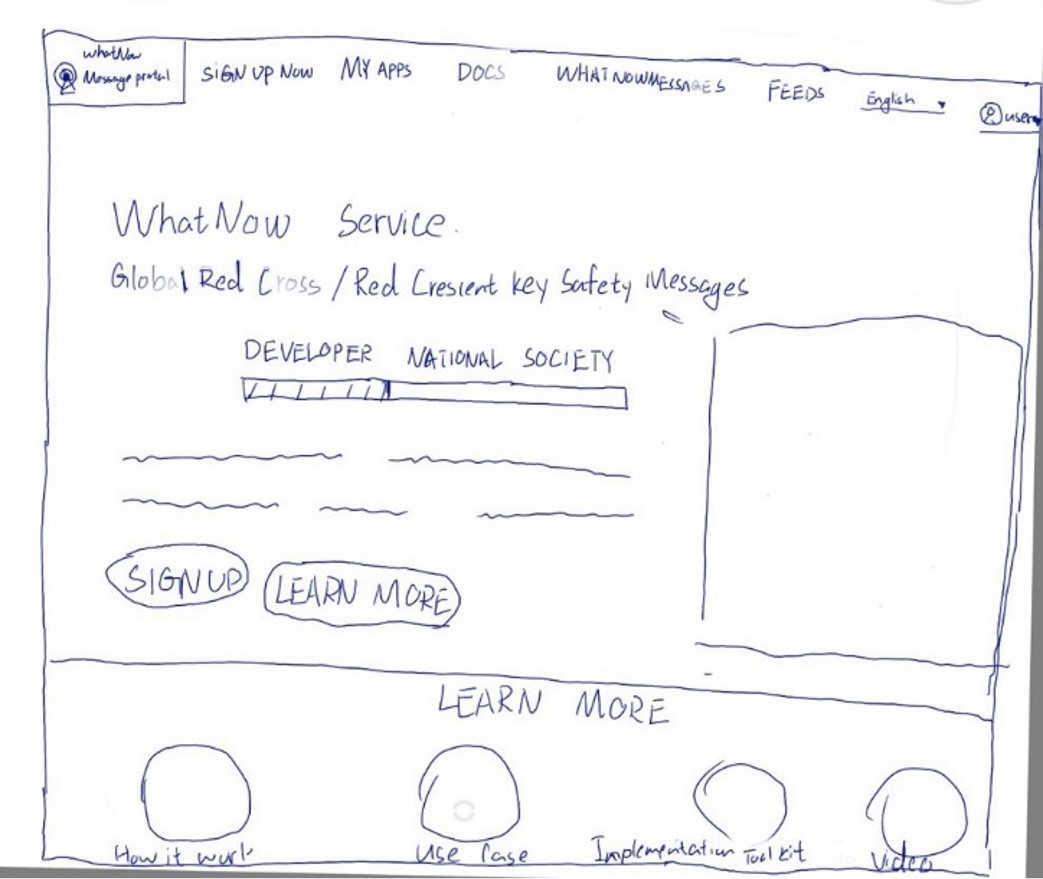 WhatNow
Message portal
SIGN UP NOW
MY APPS
DOCS
WHATNOWMESSAGES
FEEDS
English
user
WhatNow Service.
Global Red Cross / Red Crescent key Safety Messages
DEVELOPER NATIONAL SOCIETY
SIGN UP
LEARN MORE
LEARN MORE
How it work
Use Case
Implementation Tool kit
Video